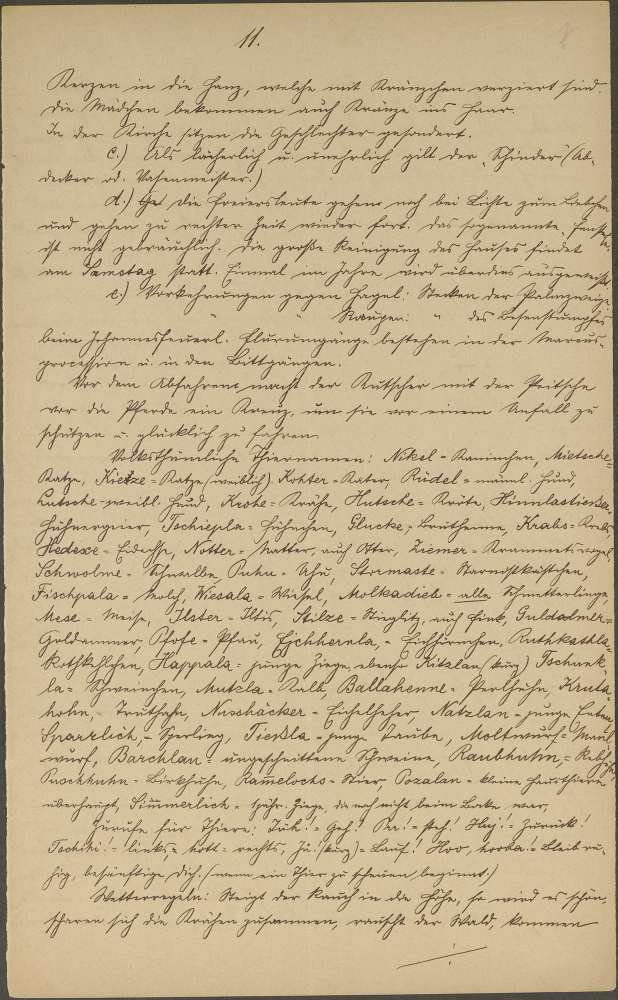 11.
Kerzen in die Hand, welche mit Kränzchen verziert sind.
Die Mädchen bekommen auch Kränze ins Haar.
In der Kirche sitzen die Geschlechter gesondert.
c.) Als lächerlich u. unehrlich gilt der „Schinder" (Ab-
decker od. Wasenmeister.)
d.) Die Freiersleute gehen noch bei Lichte zum Liebchen
und gehen zu rechter Zeit wieder fort. Das sogenannte
ist nicht gebräuchlich. Die große Reinigung des Hauses findet
am Samstag statt. Einmal im Jahre wird überdies ausgeweißt.
e.) Vorkehrungen gegen Hagel: Stecken der Palmzweige
" " Raupen: " des Besenstumpfes
beim Johannesfeuerl. Flurumgänge bestehen in der Marcus-
procession u. in den Bittgängen.
Vor dem Abfahren macht der Kutscher mit der Peitsche
vor die Pferde ein Kreuz, um sie vor einem Unfall zu
schützen u. glücklich zu fahren.
Volksthümliche Thiernamen: Nikel = Kaninchen, Mietsche =
Katze, Kietze = Katze (weiblich) Kohter = Kater, Rüdel = männl. Hund,
Lutsche = weibl. Hund, Krohe = Krähe, Hutsche = Kröte,
Hühnergeier, Tschiepla = Hühnchen, Glucke = Bruthenne, Krabs = Krebs,
Hedexe = Eidechse, Notter = Natter, auch Otter, Ziemer = Krammetsvogel,
Schwolwe = Schwalbe, Puhu = Uhu, Stormaste = Starnistkästchen,
Fischpala = Molch, Wiesala = Wiesel, Molkadieb = alle Schmetterlinge,
Mese = Meise, Ilster = Iltis, Stilze = Stieglitz, auch Fink, Guldalmer =
Goldammer, Pfofe = Pfau, Eichhernla = Eichhörnchen, Ruthkathla =
Rothkehlchen, Happala = junge Ziege, ebenso Kitzalan (kurz) Tschunk
la = Schweinchen, Mutzla = Kalb, Ballahenne = Perlhuhn, Kruta-
hohn = Truthahn, Nusshäcker = Eichelheher, Natzlan = junge Enten,
Sparrlich = Sperling, Tießla = junge Taube, Moltwurf = Maul-
wurf, Barchlan = ungeschnittene Schweine, Raubhuhn = Rebhuhn
Puschhuhn = Birkhuhn, Rammelochs = Stier, Pozalan = kleine Hausthiere
überhaupt, Simmerlich = 1jähr. Ziege, die noch nicht beim Bocke war,
Zurufe für Thiere: Jüh! = Geh! Prr! = steh! Huj! = Zurück!
Tschihi! = links, hott = rechts, (kurz) = Lauf! Hoo, hooha! = Bleib ru-
hig, besänftige dich. (wenn ein Thier zu scheuen beginnt.)
Wetterregeln: Steigt der Rauch in die Höhe, so wird es schön,
scharen sich die Krähen zusammen, rauscht der Wald, kommen